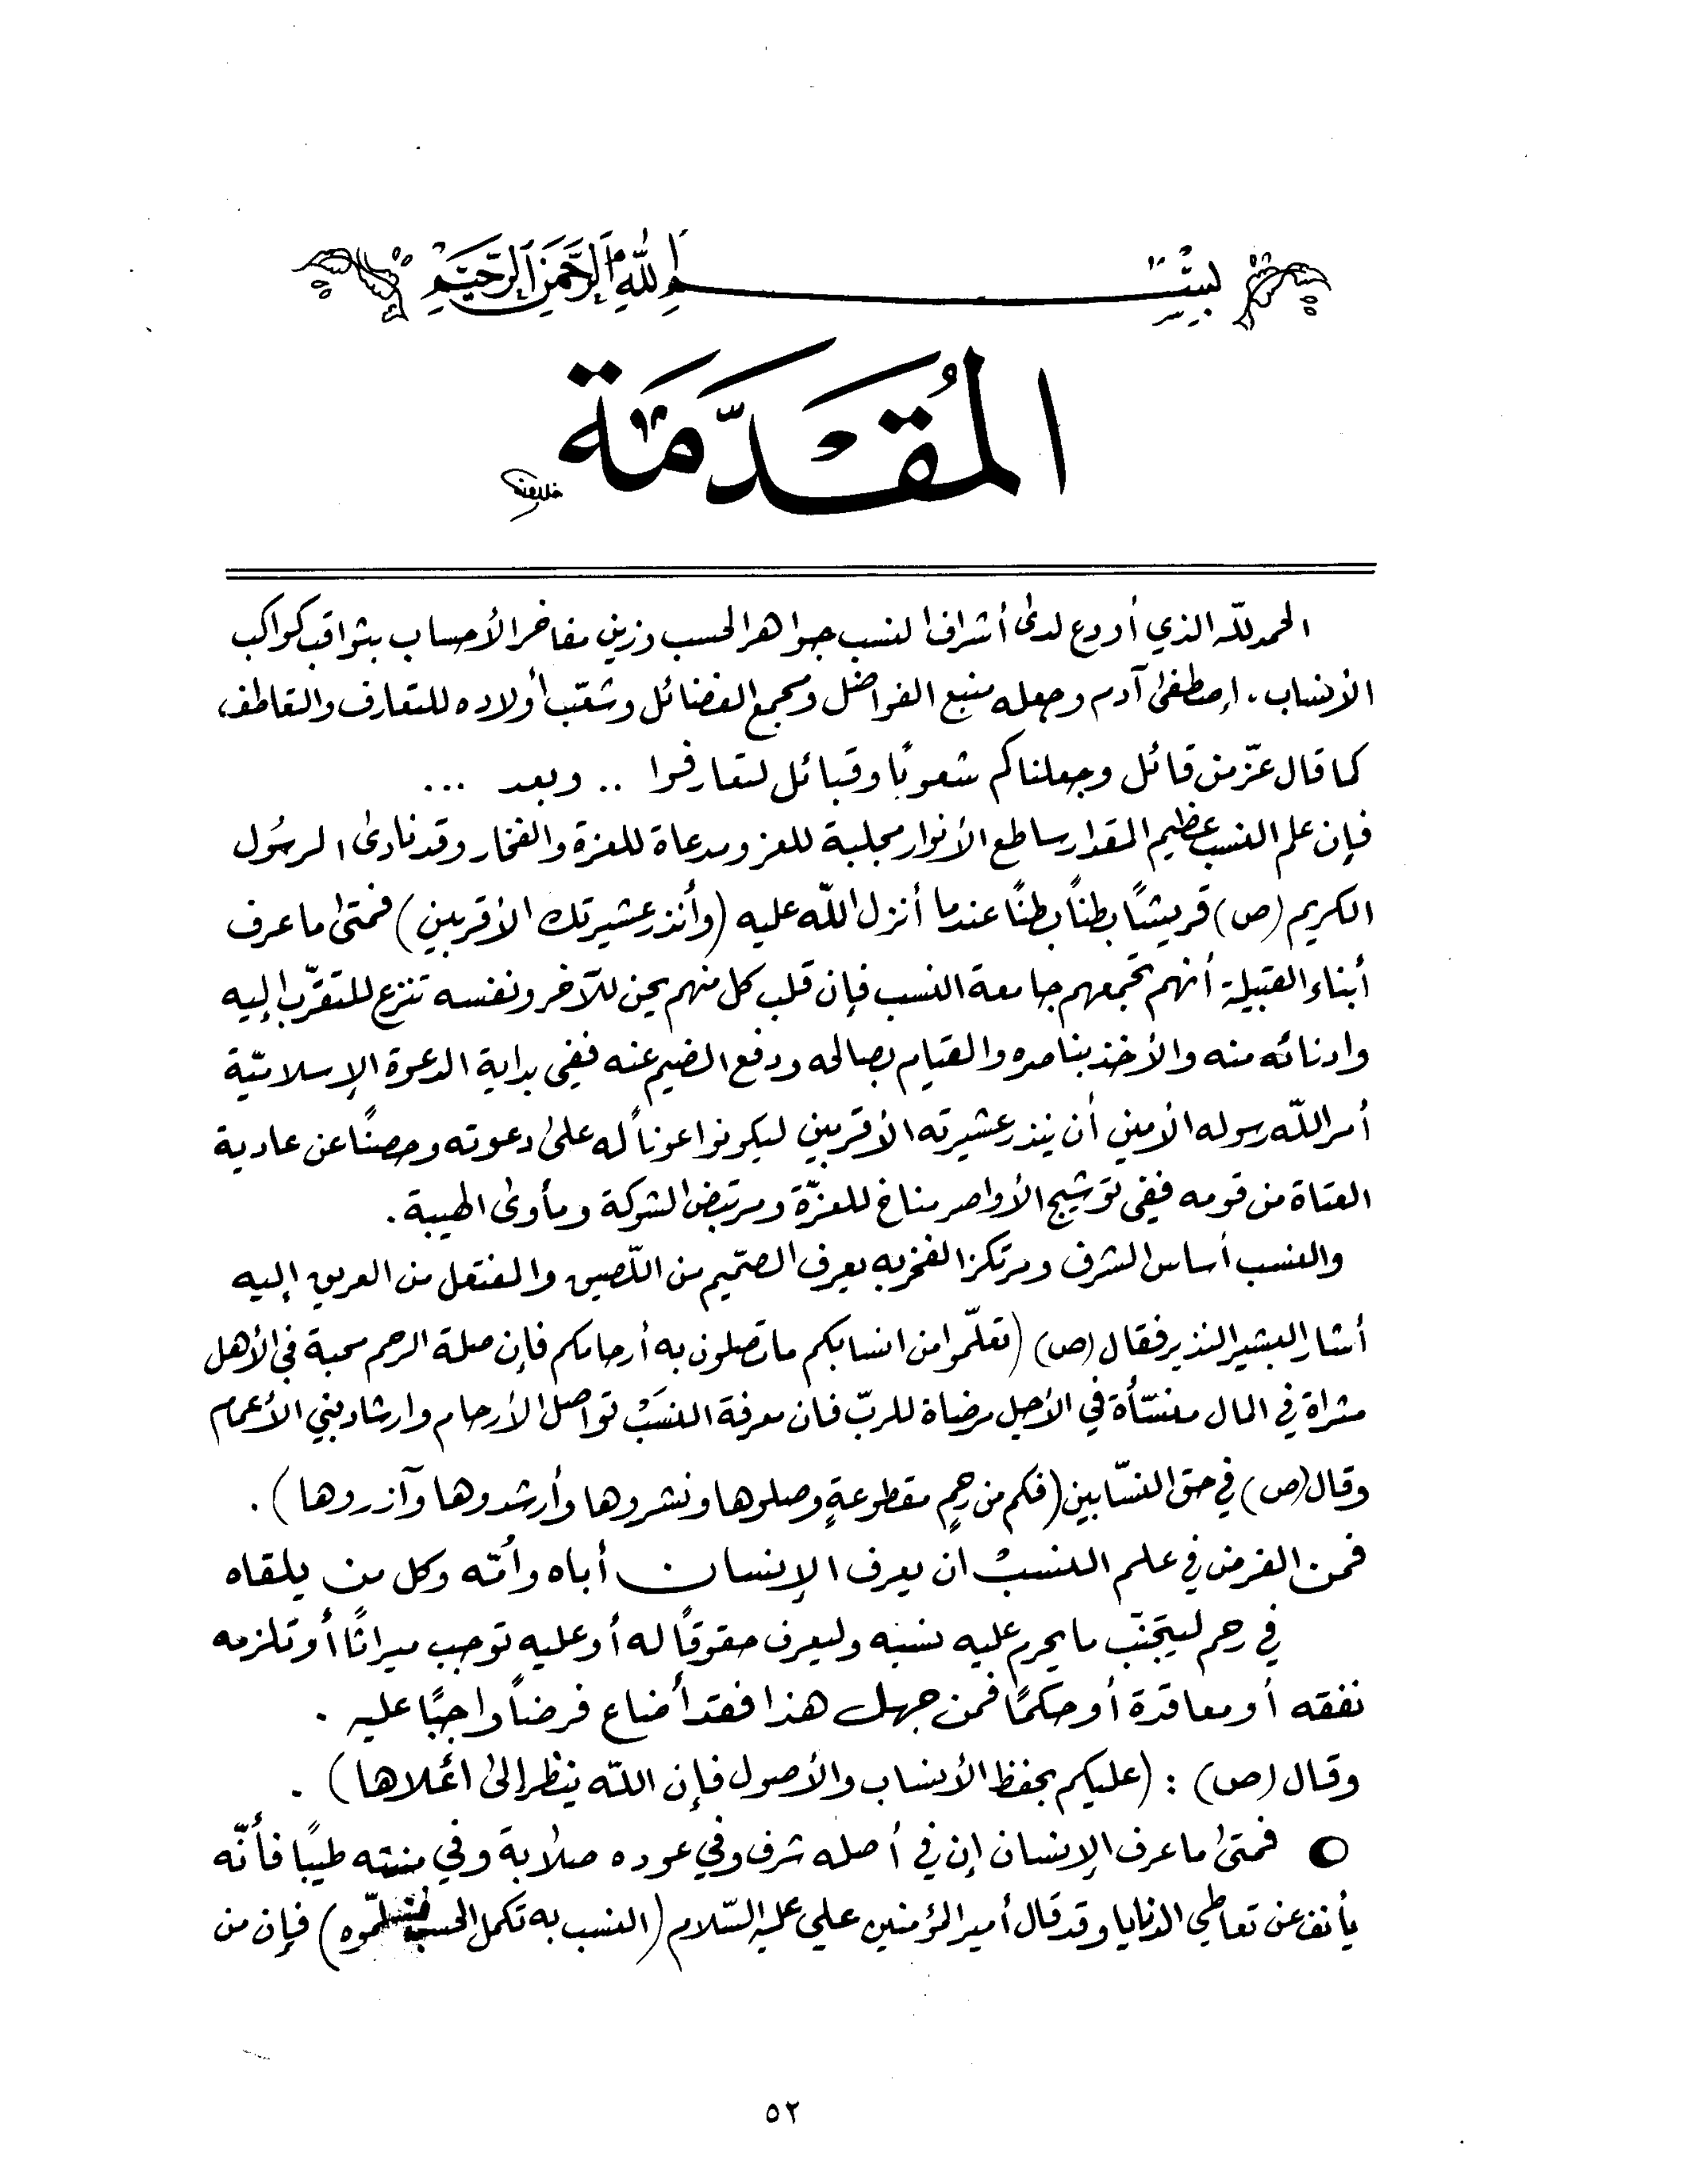 بسم الله الرحمن الرحيم
المُقَدَّمَة
الحمد للّه الذي أودع لدى أشراف النسب جواهر الحسب وزين مفاخر الأحساب بثواقب كواكب
الأنساب . إصطفى آدم وجعله منبع الفواضل ومجمع الفضائل وشعّب أولاده للتعارف والتعاطف،
كما قال عزّ من قائل وجعلناكم شعوبًا وقبائل لتعارفوا .. وبعد ...
فإن علم النسب عظيم المقدار ساطع الأنوار مجلبة للعز ومدعاة للعزة والفخار وقد نادى الرسُول
الكريم (ص) قريشًا بطناً بطنًا عندما أنزل اللّه عليه (وأنذر عشيرتك الأقربين) فمتى ما عرف
أبناء القبيلة أنهم تجمعهم جامعة النسب فإن قلب كل منهم يحن للآخر ونفسه تنزع للتقرّب إليه
وادنائه منه والأخذ بناصره والقيام بصالحه ودفع الضيم عنه ففي بداية الدعوة الإسلاميّة
أمر اللّه رسوله الأمين أن ينذر عشيرته الأقربين ليكونوا عوناً له على دعوته وحصنًا عن عادية
العتاة من قومه ففي توشيج الأواصر مناخ للعزّة ومرتبض الشوكة ومأوى الهيبة .
والنسب أساس الشرف ومرتكز الفخر به يعرف الصّميم من اللّصيق والمفتعل من العريق إليه
أشار البشير النذير فقال (ص) (تعلّموا من انسابكم ما تصلون به أرحامكم فإن صلة الرحم محبة في الأهل
مثراة في المال منسّأة في الأجل مرضاة للربّ فان معرفة النسَبْ تواصل الأرحام وارشاد بني الأعمام
وقال (ص) في حق النسّابين (فكم من رحمٍ مقطوعةٍ وصلوها ونشروها وأرشدوها وآزروها) .
فمن الفرض في علم النسبْ ان يعرف الإنسان أباه وأُمّه وكل من يلقاه
في رحم ليتجنّب ما يحرم عليه نسبه وليعرف حقوقاً له أو عليه توجب ميراثًا أو تلزمه
نفقه أو معاقدة أو حكمًا فمن جهل هذا فقد أضاع فرضاً واجبًا عليه .
وقال (ص) : (عليكم بحفظ الأنساب والأصول فإن اللّه ينظر الى اعلاها) .
○ فمتى ما عرف الإنسان إن في أصله شرف وفي عوده صلابة وفي منبته طيبًا فأنّه
يأنف عن تعاطي الدنايا وقد قال أمير المؤمنين علي عليه السّلام (النسب به تكمل الحسب) فإن من
٥٢